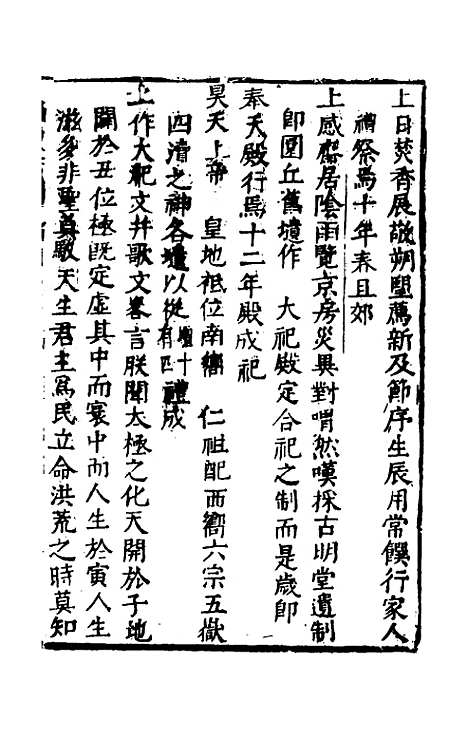 上日焚香展敬朔望薦新及節序生辰用常饌行家人
禮祭焉十年春且郊
上感齋居陰雨覽京房災異對喟然嘆採古明堂遺制
即圜丘舊壇作 大祀殿定合祀之制而是歲即
奉天殿行焉十二年殿成祀
昊天上帝 皇地祗位南嚮 仁祖配西嚮六宗五嶽
四瀆之神各壇以從壇十有四禮成
上作大祀文并歌文畧言朕聞太極之化天開於子地
闢於丑位極既定虛其中而寰中而人生於寅人生
滋多非聖莫馭天生君主為民立命洪荒之時莫知